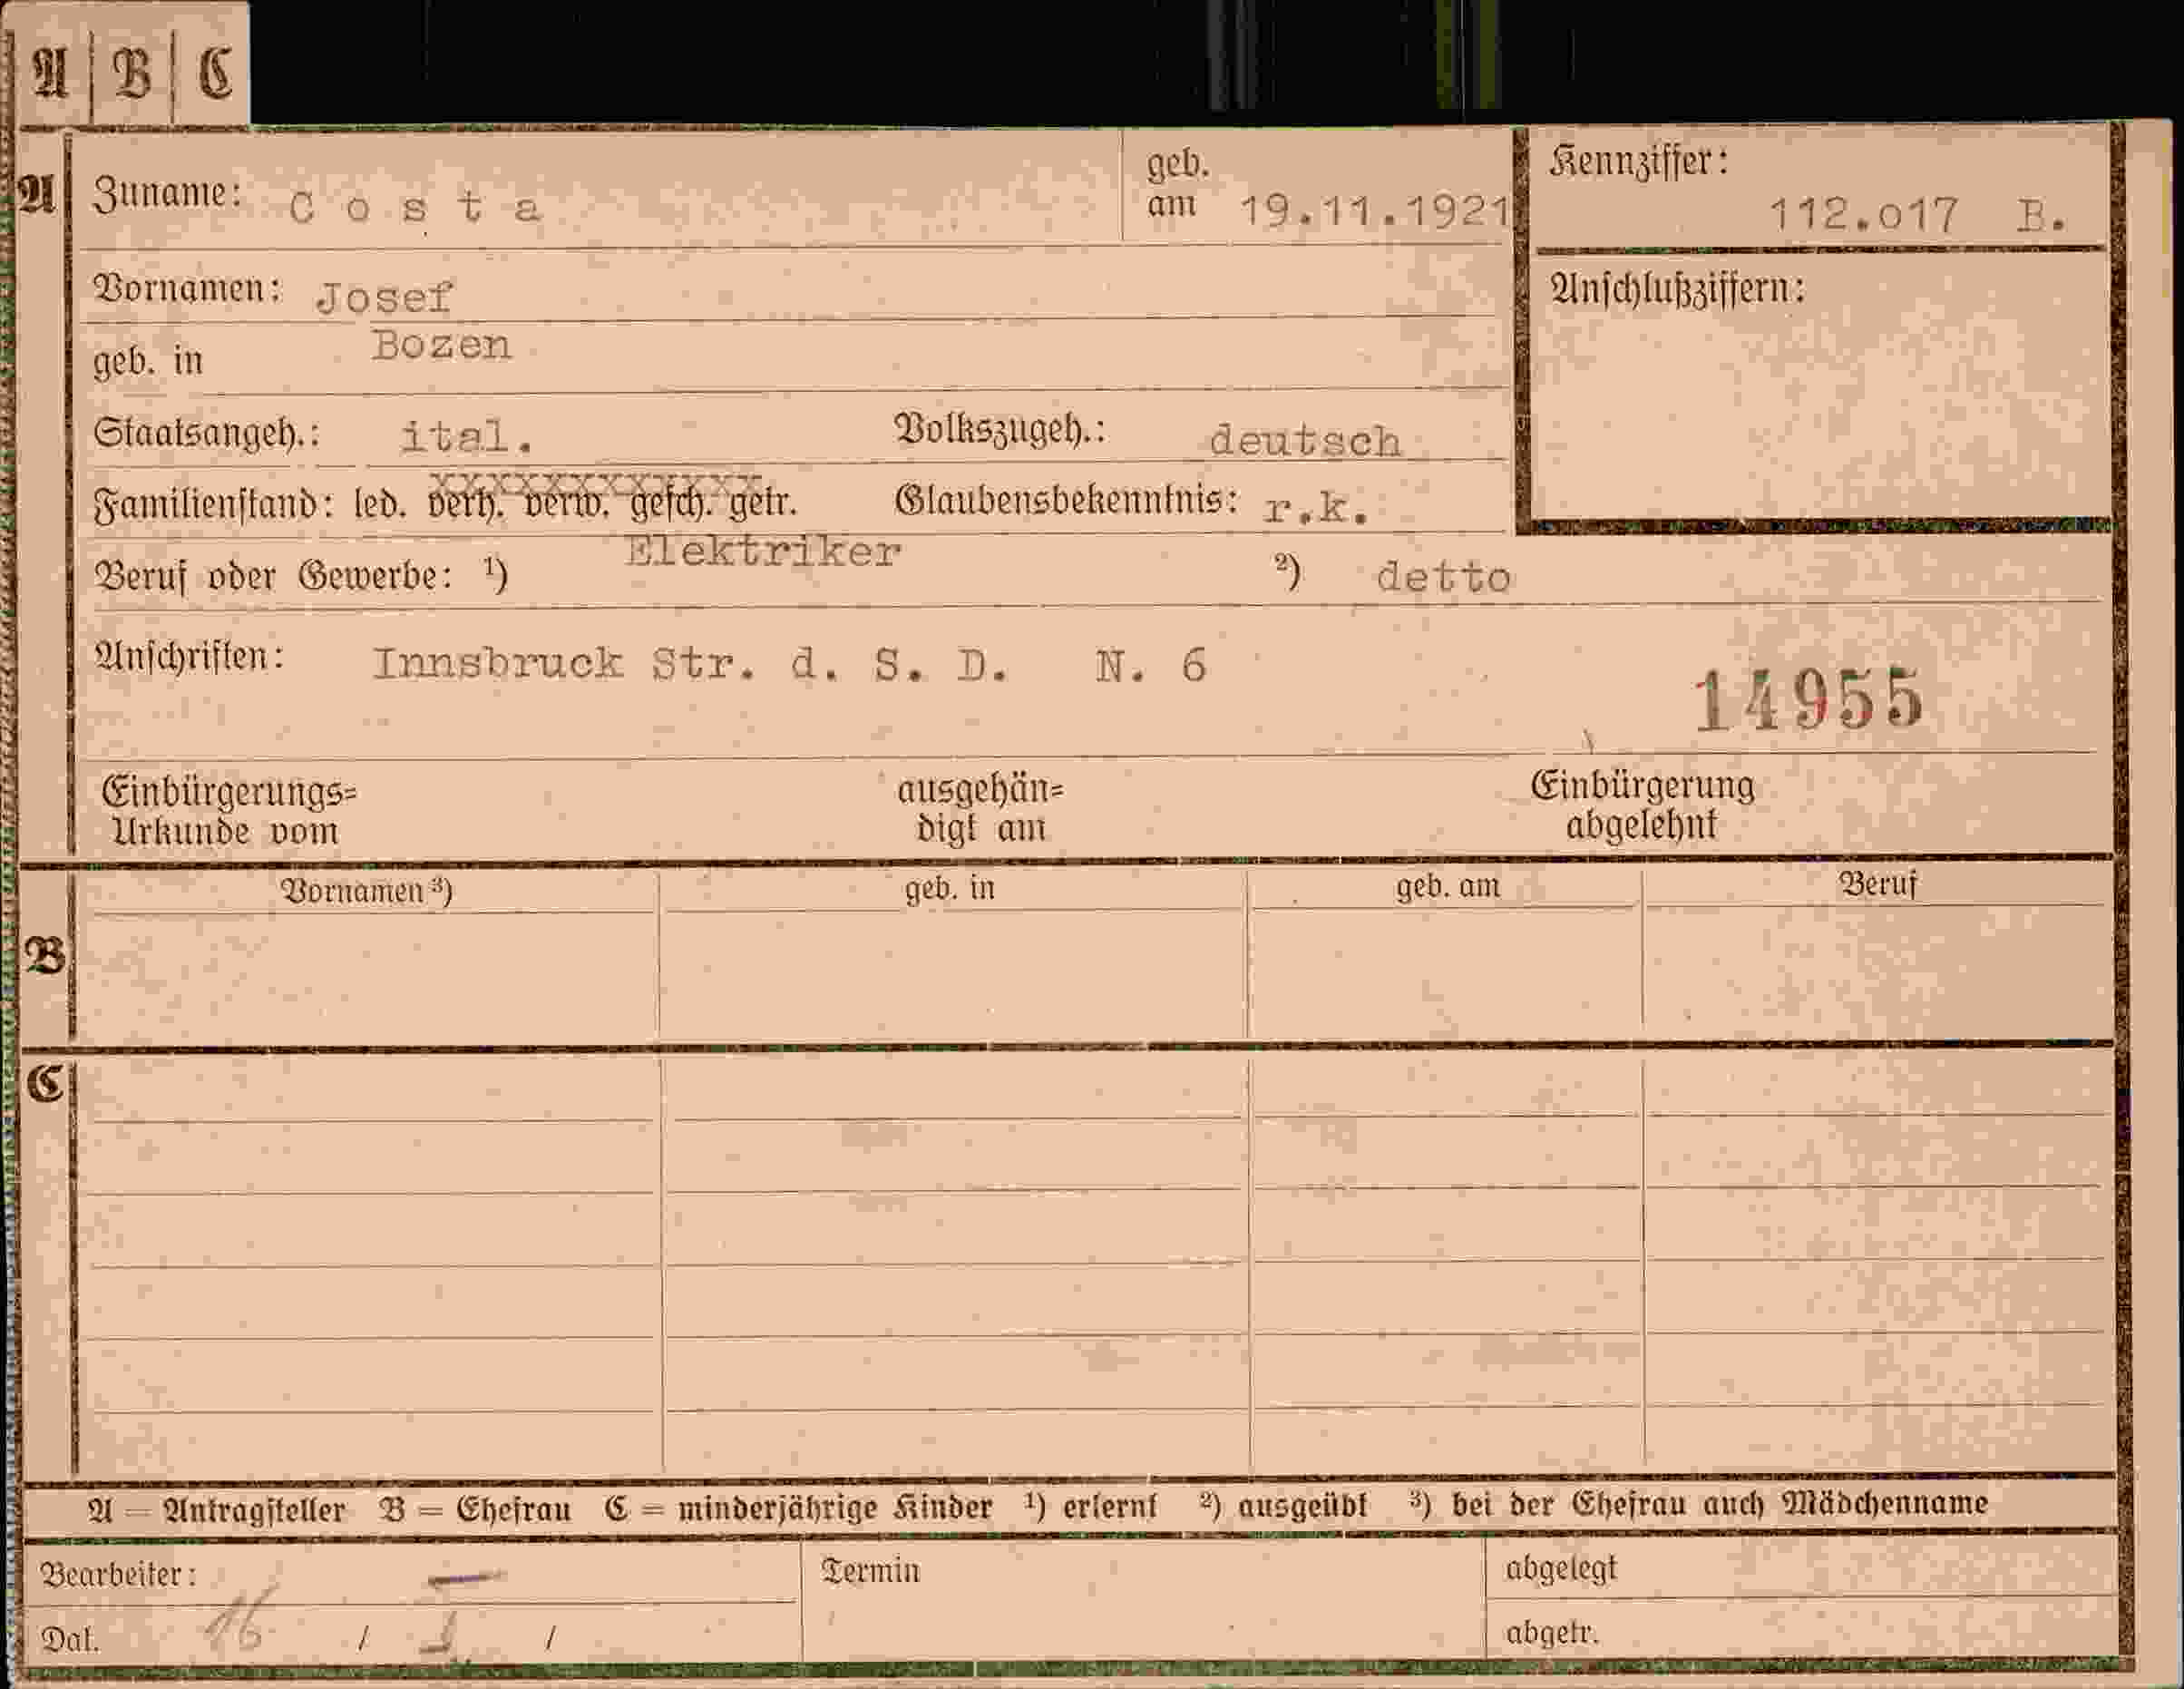 A | B | C
A Zuname: Costa geb. am 19.11.1921 Kennziffer: 112.017 B.
Vornamen: Josef Anschlußziffern:
geb. in Bozen
Staatsangeh.: ital. Volkszugeh.: deutsch
Familienstand: led. verh. verw. gesch. getr. Glaubensbekenntnis: r.k.
Beruf oder Gewerbe: ¹) Elektriker ²) detto
Anschriften: Innsbruck Str. d. S. D. N. 6
14955
Einbürgerungs= ausgehän= Einbürgerung
Urkunde vom digt am abgelehnt
Vornamen ³) geb. in geb. am Beruf
B
C
A = Antragsteller B = Ehefrau C = minderjährige Kinder ¹) erlernt ²) ausgeübt ³) bei der Ehefrau auch Mädchenname
Bearbeiter: Termin abgelegt
Dat. 16 / / abgetr.